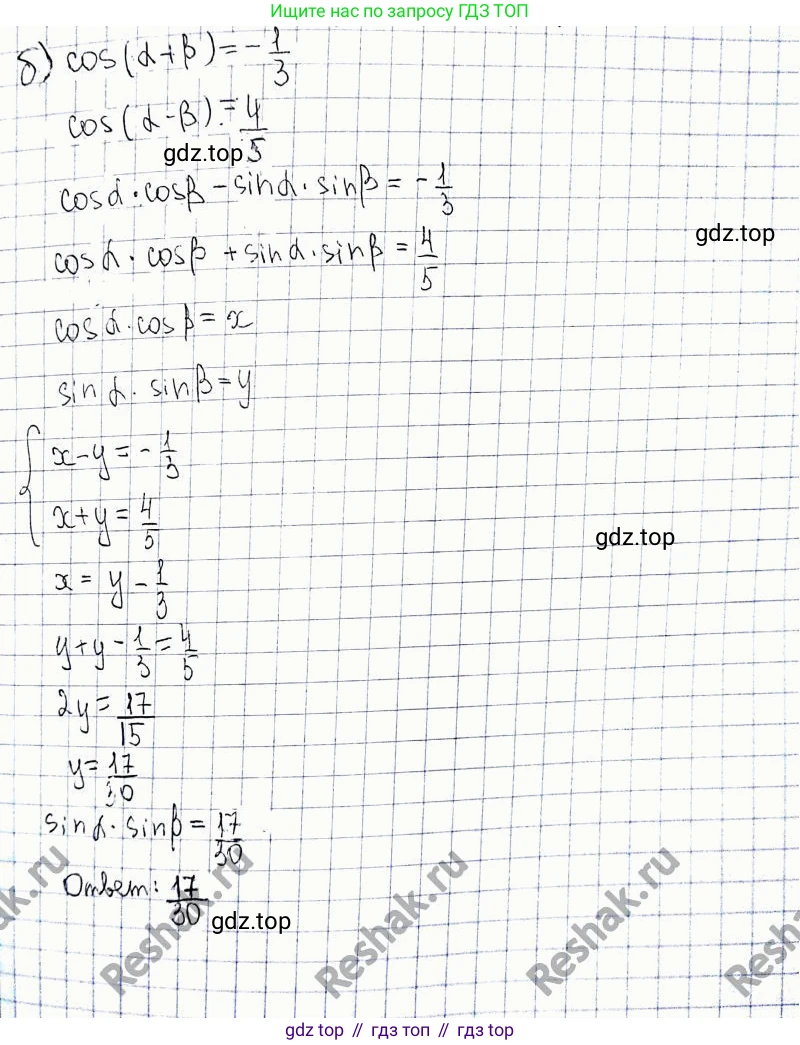 Ищите нас по запросу ГДЗ ТОП
б) cos(α+β)=-1/3
cos(α-β)=4/5
gdz.top
cosα·cosβ-sinα·sinβ=-1/3
gdz.top
cosα·cosβ+sinα·sinβ=4/5
cosα·cosβ=x
sinα·sinβ=y
{x-y=-1/3
x+y=4/5
gdz.top
x=y-1/3
y+y-1/3=4/5
2y=17/15
y=17/30
sinα·sinβ=17/30
Ответ: 17/30
gdz.top
Reshak.ru
Reshak.ru
Reshak.ru
Reshak.ru
Reshak.ru
gdz top // гдз топ // гдз top